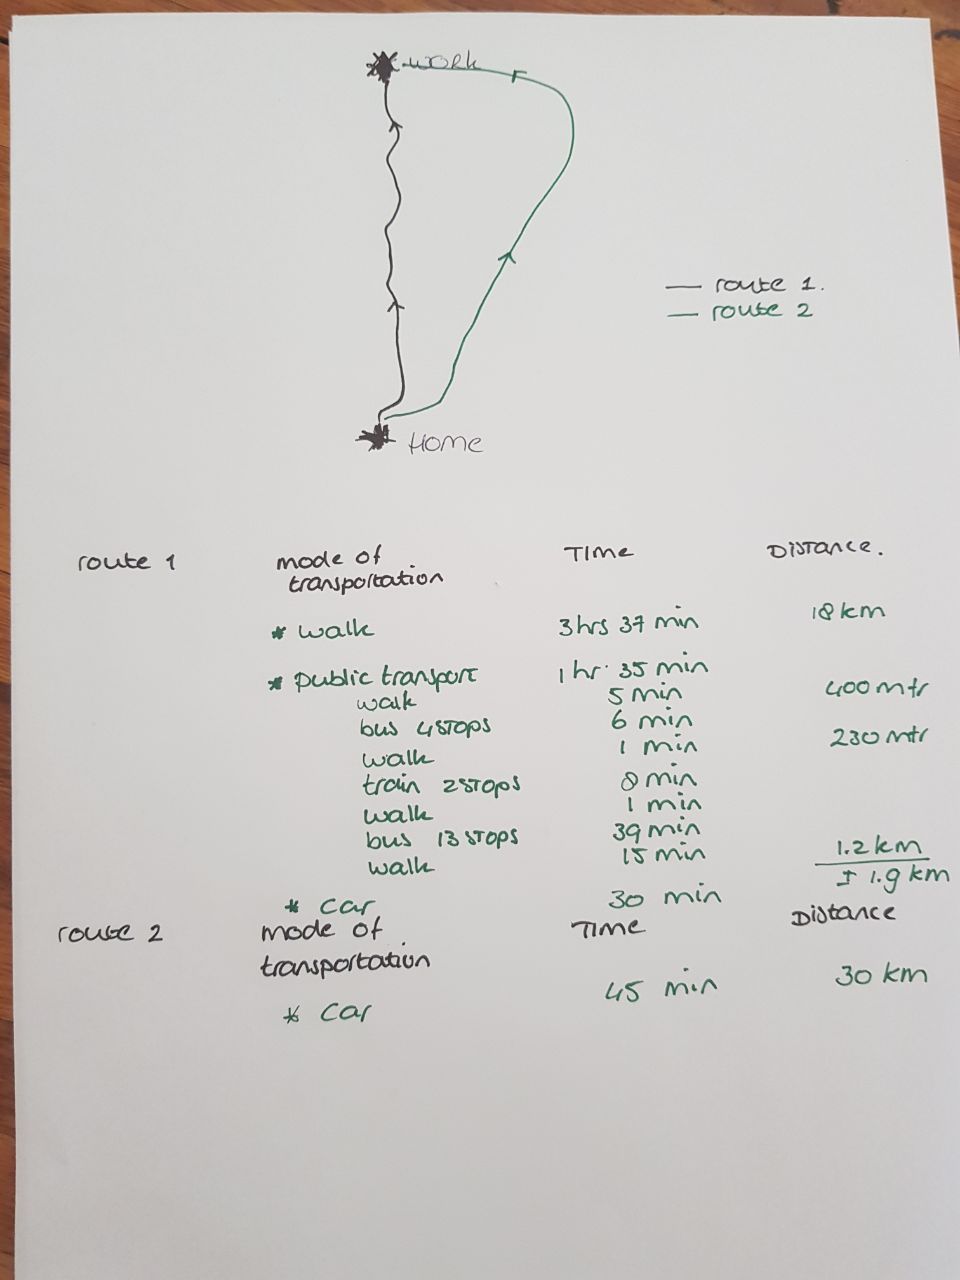 work
route 1.
route 2
Home
route 1 mode of transportation Time Distance.
* walk 3 hrs 37 min 18 km
* public transport 1 hr. 35 min
walk 5 min 400 mtr
bus 4 stops 6 min
walk 1 min 230 mtr
train 2 stops 8 min
walk 1 min
bus 13 stops 39 min
walk 15 min 1.2 km
± 1.9 km
* car 30 min
route 2 mode of transportation Time Distance
* car 45 min 30 km